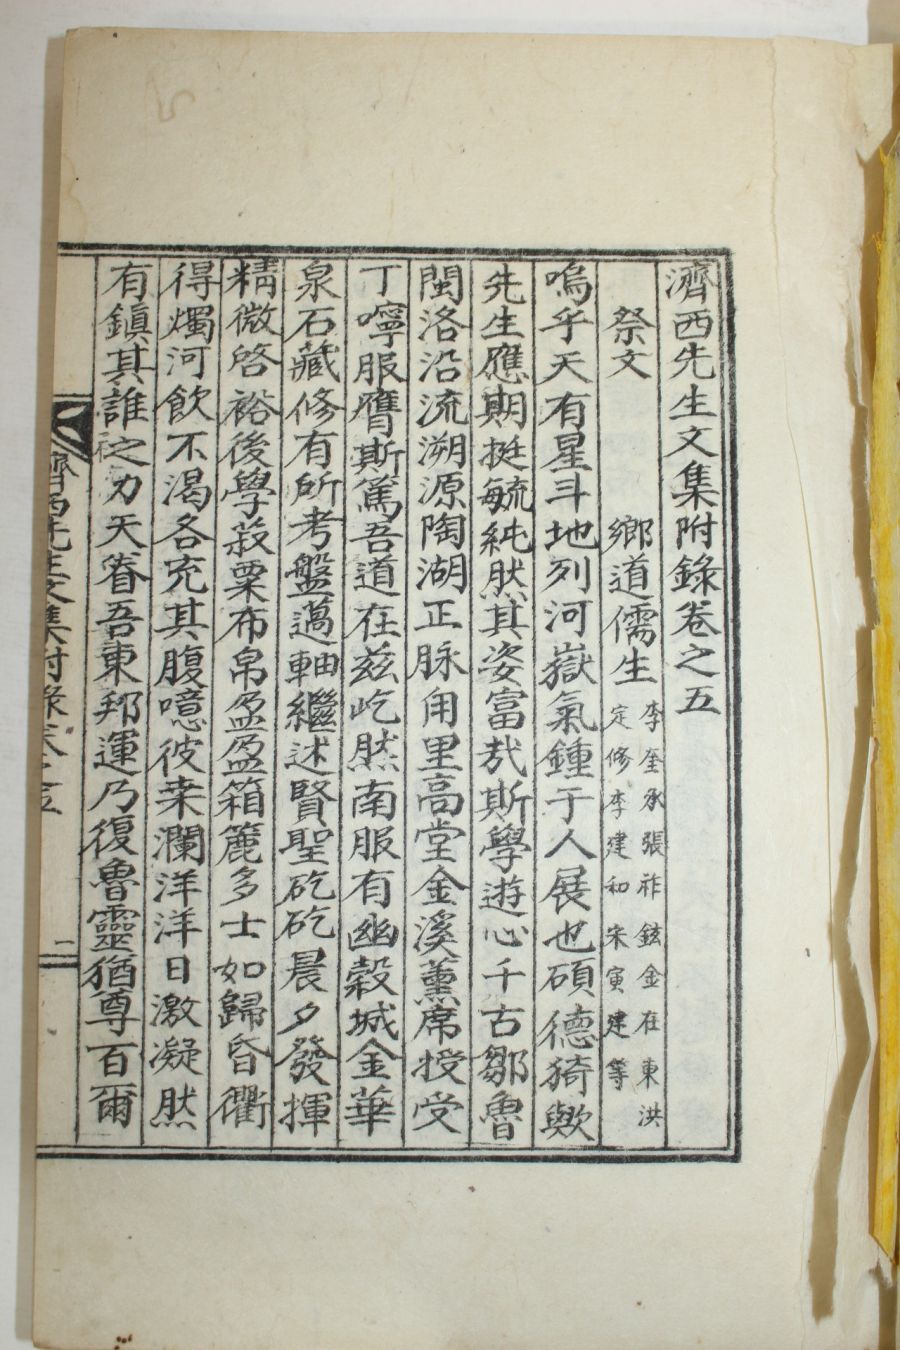 濟西先生文集附錄卷之五
祭文 鄕道儒生 李奎承張祚鉉金在東洪
定修李建和宋寅建等
嗚乎天有星斗地列河嶽氣鍾于人展也碩德猗歟
先生應期挺毓純然其姿富哉斯學遊心千古鄒魯
閩洛沿流溯源陶湖正脉甪里高堂金溪薰席授受
丁嚀服膺斯篤吾道在玆屹然南服有幽糓城金華
泉石藏修有所考盤薖軸繼述賢聖矻矻晨夕發揮
精微啓裕後學菽粟布帛盈盈箱簏多士如歸昏衢
得燭河飮不渴各充其腹噫彼桒瀾洋洋日激凝然
有鎭其誰之力天眷吾東邦運乃復魯靈猶尊百爾
濟西先生文集附錄卷之五
一